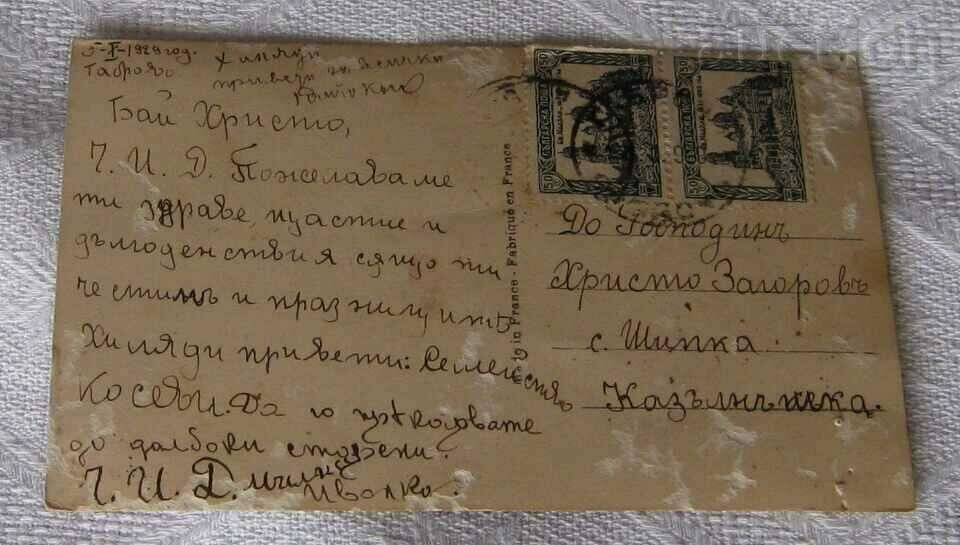 5-I-1929 год.
Габрово.
Хиляди
привети на всички
Бай Христо,
Ч. И. Д. Пожелаваме
ти здраве щастие и
дългоденствия също ти
честимъ и празницитѣ
Хиляди привети: Семейство
Косеви. Да го
до дълбоки старени.
Ч. И. Д.
Made in France - Fabriqué en France
До Господинъ
Христо Загоровъ
с. Шипка
Казълнъшка.
50
50